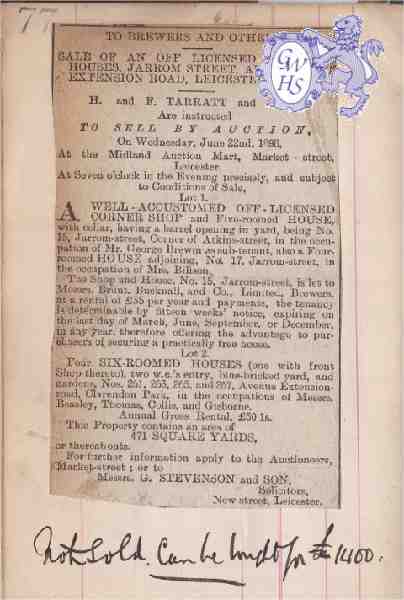 77
TO BREWERS AND OTHE
SALE OF AN OFF LICENSED
HOUSES, JARROM STREET, A
EXTENSION ROAD, LEICEST
GWHS
H. and F. TARRATT and
Are instructed
TO SELL BY AUCTION,
On Wednesday, June 22nd,
At the Midland Auction Mart, Market-street,
Leicester
At Seven o'clock in the Evening precisely, and subject
to Conditions of Sale,
Lot 1.
A WELL-ACCUSTOMED OFF-LICENSED
CORNER SHOP and Five-roomed HOUSE,
with cellar, having a barrel opening in yard, being No.
15, Jarrom-street, Corner of Atkins-street, in the occu-
pation of Mr. George Brown as sub-tenant, also a Four-
roomed HOUSE adjoining, No. 17, Jarrom-street, in
the occupation of Mrs. Billson.
The Shop and House, No. 15, Jarrom-street, is let to
Messrs. Brunt, Bucknall, and Co., Limited, Brewers,
at a rental of £35 per year and payments, the tenancy
is determinable by fifteen weeks' notice, expiring on
the last day of March, June, September, or December,
in any year, therefore offering the advantage to pur-
chasers of securing a practically free house.
Lot 2.
Four SIX-ROOMED HOUSES (one with front
Shop thereto), two w.c.'s, entry, blue-bricked yard, and
gardens, Nos. 261, 263, 265, and 267, Avenue Extension-
road, Clarendon Park, in the occupations of Messrs.
Beasley, Thomas, Collis, and Gisborne.
Annual Gross Rental, £50 1s.
This Property contains an area of
471 SQUARE YARDS,
or thereabouts.
For further information apply to the Auctioneers,
Market-street; or to
Messrs. G. STEVENSON and SON,
Solicitors,
New street, Leicester.
Not Sold. Can be bought for £1400.